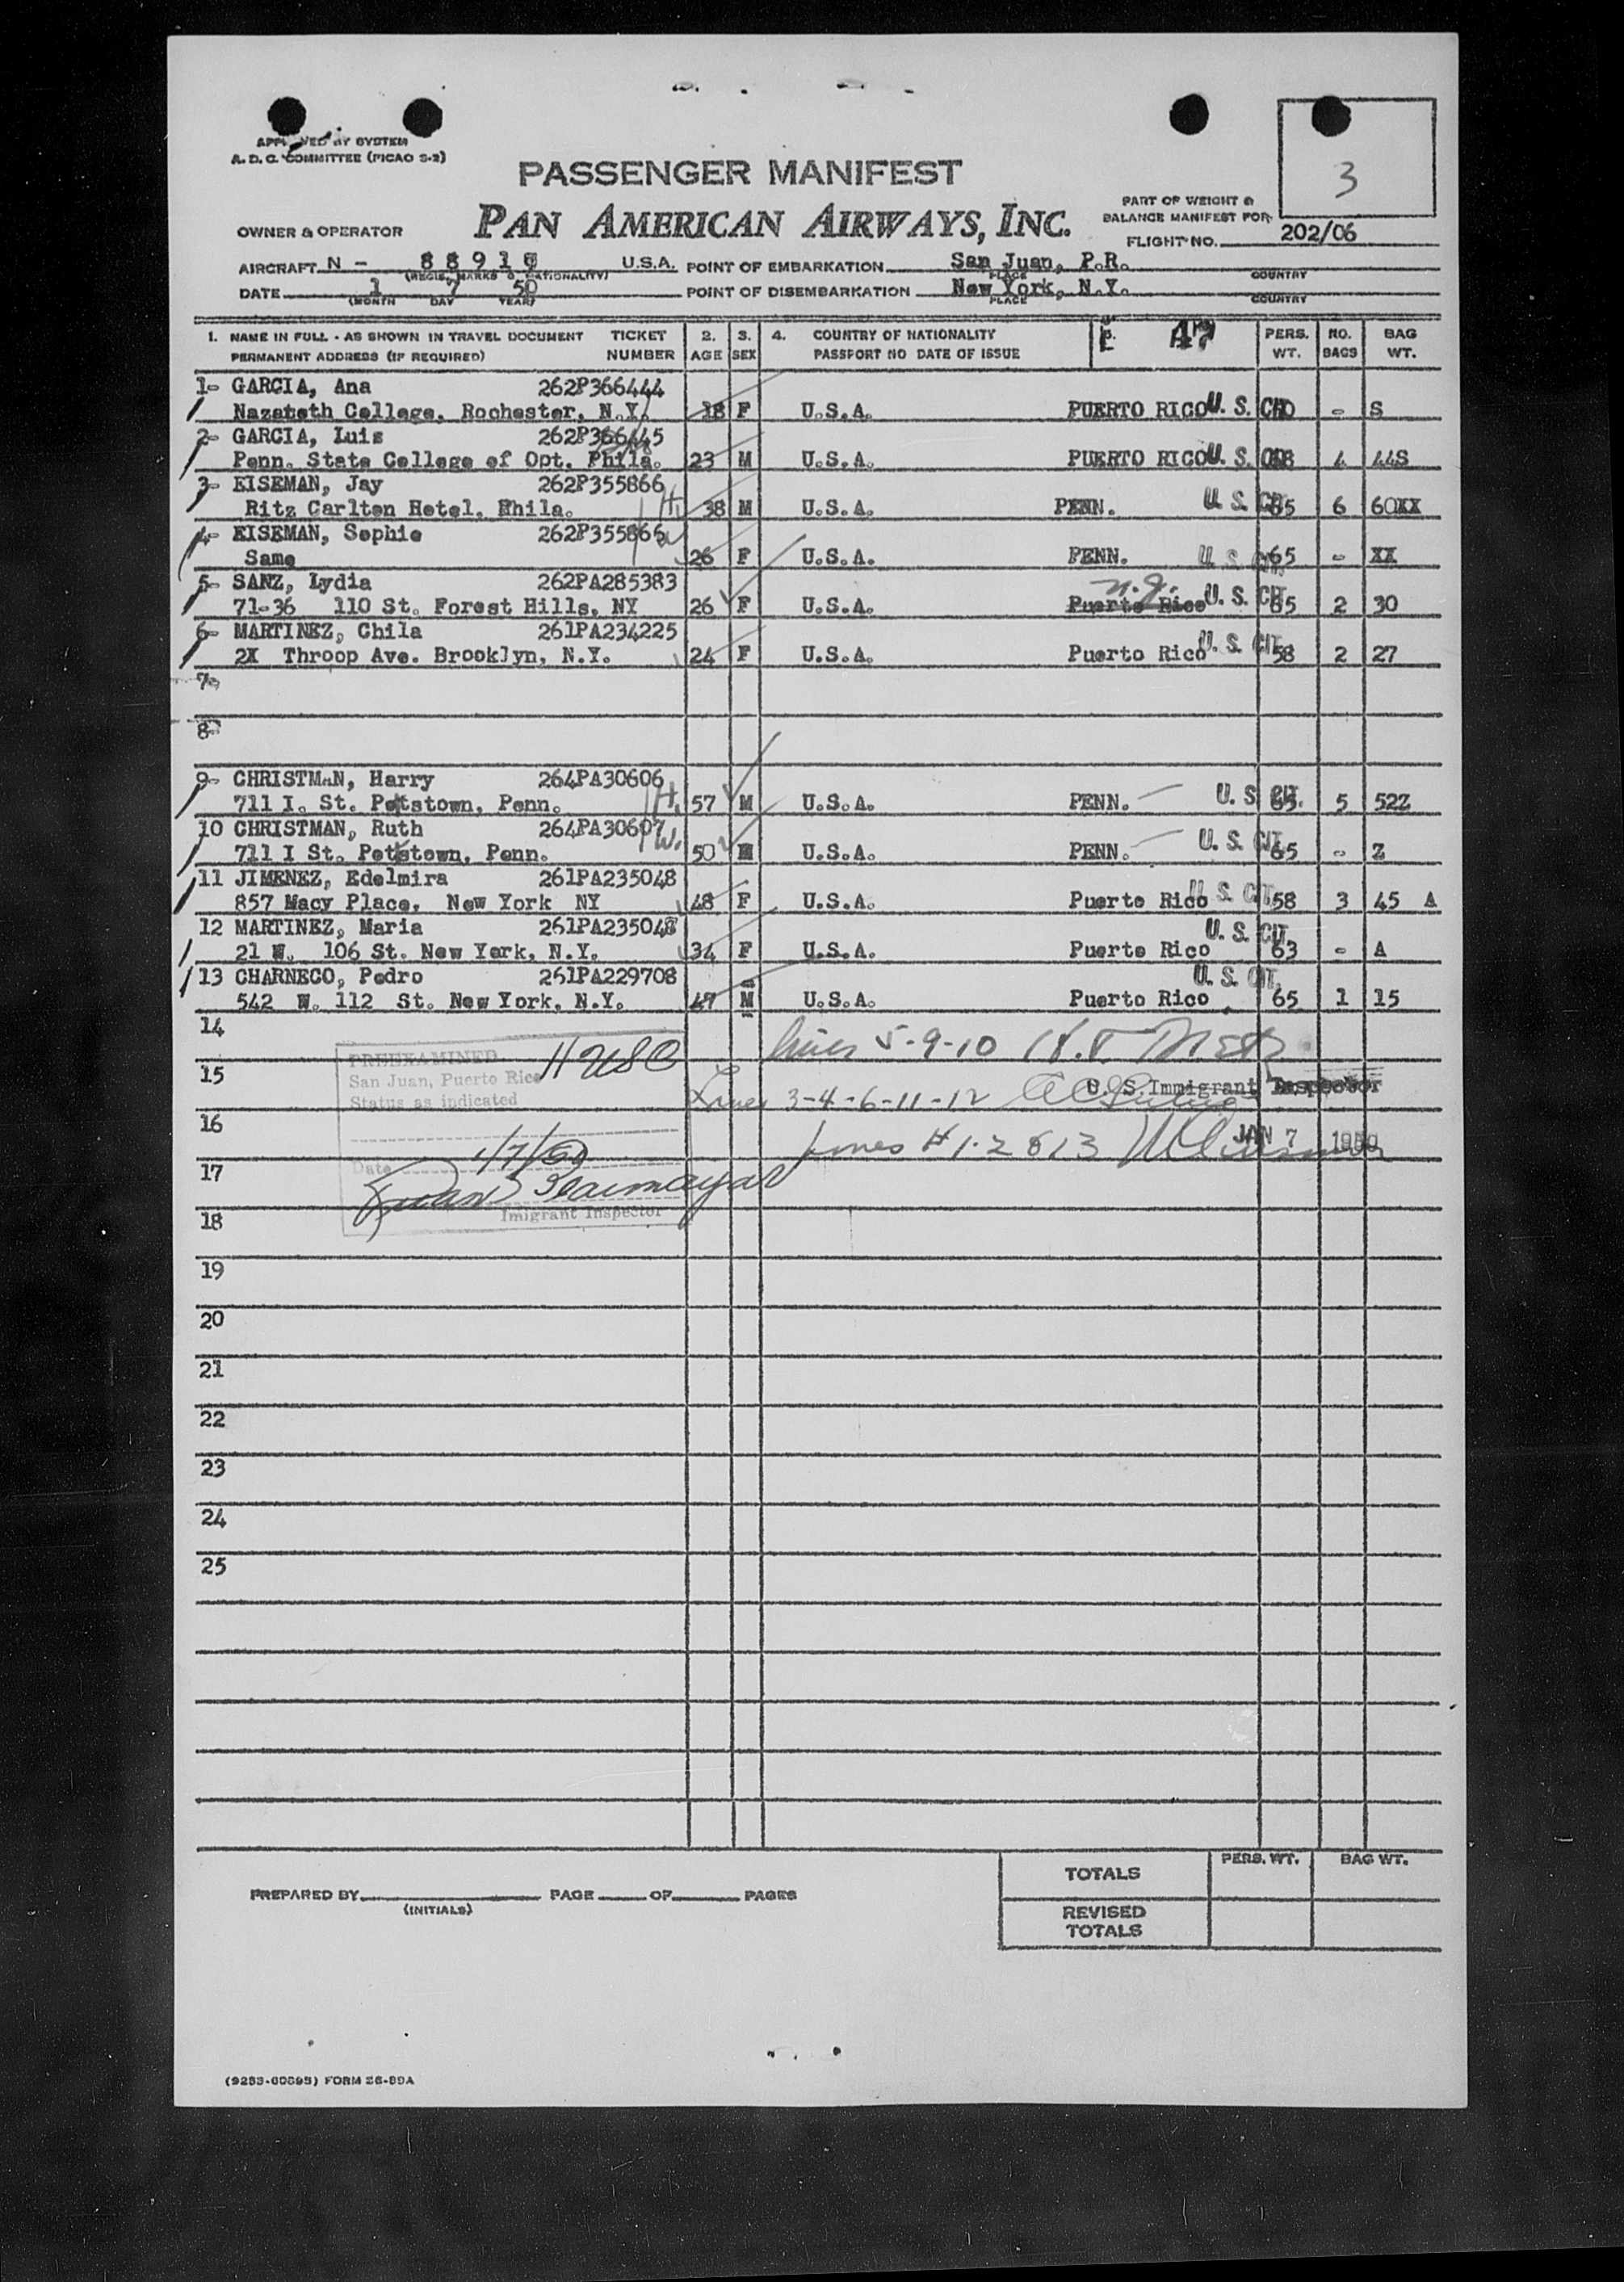 APPROVED BY SYSTEM
A. D. C. COMMITTEE (PICAO S-2)
3
PASSENGER MANIFEST
PAN AMERICAN AIRWAYS, INC.
OWNER & OPERATOR
PART OF WEIGHT &
BALANCE MANIFEST FOR
FLIGHT NO. 202/06
AIRCRAFT N - 8891 U.S.A. POINT OF EMBARKATION San Juan, P.R.
(REGIS. MARKS & NATIONALITY) PLACE COUNTRY
DATE 1 7 50 POINT OF DISEMBARKATION New York, N.Y.
(MONTH DAY YEAR) PLACE COUNTRY
1. NAME IN FULL - AS SHOWN IN TRAVEL DOCUMENT TICKET 2. 3. 4. COUNTRY OF NATIONALITY PERS. NO. BAG
PERMANENT ADDRESS (IF REQUIRED) NUMBER AGE SEX PASSPORT NO DATE OF ISSUE WT. BAGS WT.
1- GARCIA, Ana 262P366444
Nazareth College, Rochester, N.Y. 18 F U.S.A. PUERTO RICO U. S. - S
2- GARCIA, Luis 262P366445
Penn. State College of Opt. Phila. 23 M U.S.A. PUERTO RICO U. S. 4 44S
3- EISEMAN, Jay 262P355866 H.
Ritz Carlton Hotel, Phila. 38 M U.S.A. PENN. U. S. CIT. 6 60XX
4- EISEMAN, Sophie 262P355866 W
Same 26 F U.S.A. PENN. U. S. CIT. 65 - XX
5- SANZ, Lydia 262PA285383 N.J.
71-36 110 St. Forest Hills, NY 26 F U.S.A. Puerto Rico U. S. CIT. 65 2 30
6- MARTINEZ, Chila 261PA234225
2X Throop Ave. Brooklyn, N.Y. 24 F U.S.A. Puerto Rico U. S. CIT. 58 2 27
7-
8-
9- CHRISTMAN, Harry 264PA30606 H.
711 I. St. Pottstown, Penn. 57 M U.S.A. PENN. U. S. CIT. 65 5 52Z
10 CHRISTMAN, Ruth 264PA30607 W.
711 I St. Pottstown, Penn. 50 U.S.A. PENN. U. S. CIT. 65 - Z
11 JIMENEZ, Edelmira 261PA235048
857 Macy Place, New York NY 48 F U.S.A. Puerto Rico U. S. CIT. 58 3 45 A
12 MARTINEZ, Maria 261PA235048
21 W. 106 St. New York, N.Y. 34 F U.S.A. Puerto Rico U. S. CIT. 63 - A
13 CHARNECO, Pedro 261PA229708
542 W. 112 St. New York, N.Y. 49 M U.S.A. Puerto Rico U. S. CIT. 65 1 15
14
lines 5-9-10
PREEXAMINED 11 USC
15 San Juan, Puerto Rico
Status as indicated
U. S. Immigrant Inspector
Lines 3-4-6-11-12
16
Lines # 1-2 & 13 JAN 7 1950
Date 1/7/50
17
Juan
Imigrant Inspector
18
19
20
21
22
23
24
25
PREPARED BY PAGE OF PAGES
(INITIALS)
PERS. WT. BAG WT.
TOTALS
REVISED
TOTALS
(9283-60895) FORM 26-89A